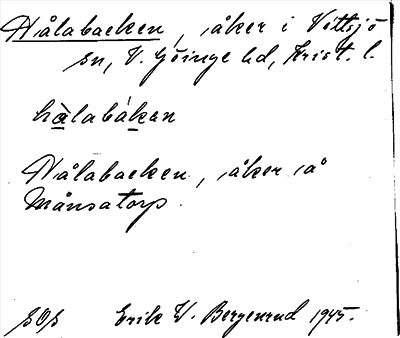 Hålabacken, åker i Vittsjö
sn, V. Göinge hd, Krist. l.
hàlabákan
Hålabacken, åker på
Månsatorp.
Erik W. Bergenrud 1945.